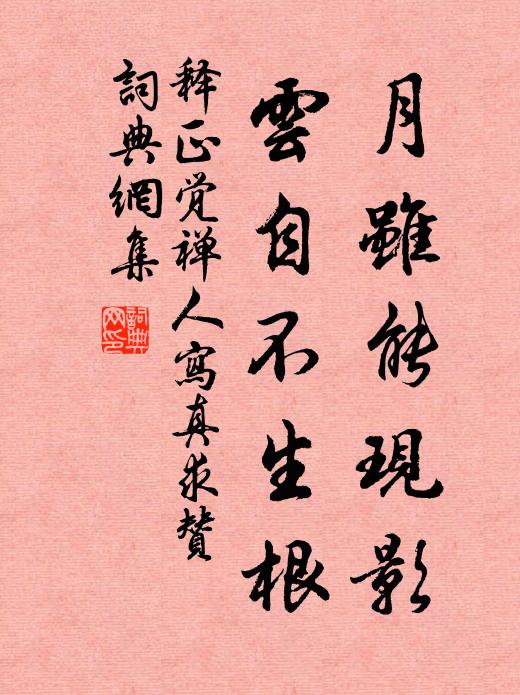 月雖能現影
雲自不生根
释正觉禅人寫真求贊
詞典網集
詞典
网印